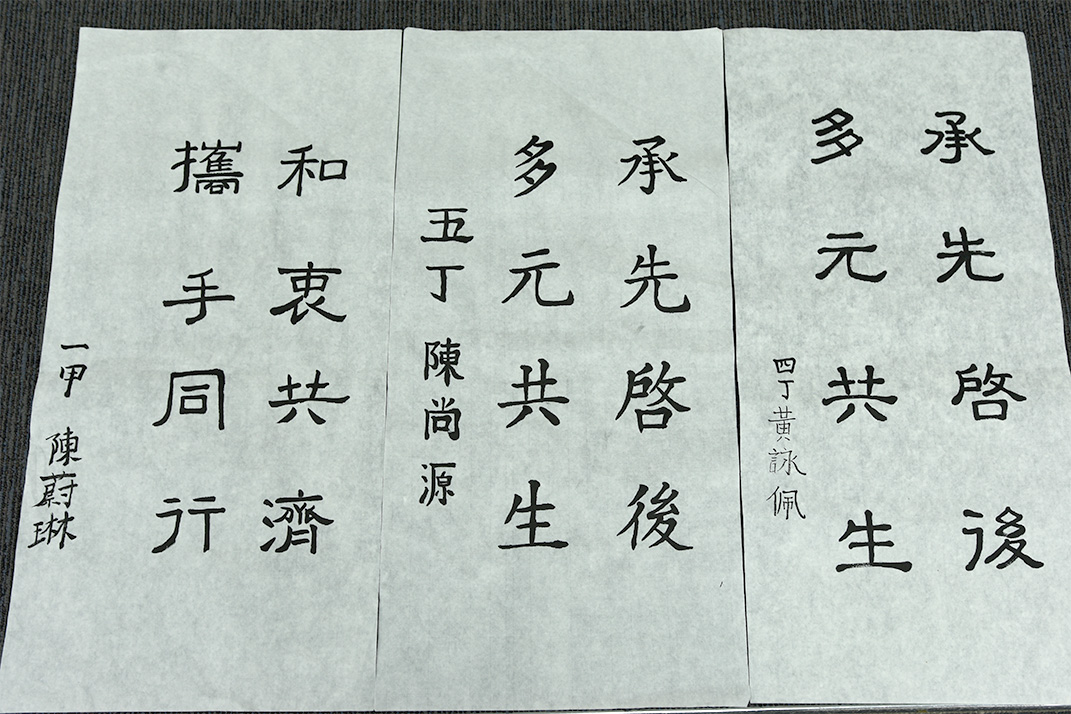 承先啓後
多元共生
四丁黃詠佩
承先啓後
多元共生
五丁 陳尚源
和衷共濟
攜手同行
一甲 陳蔚琳